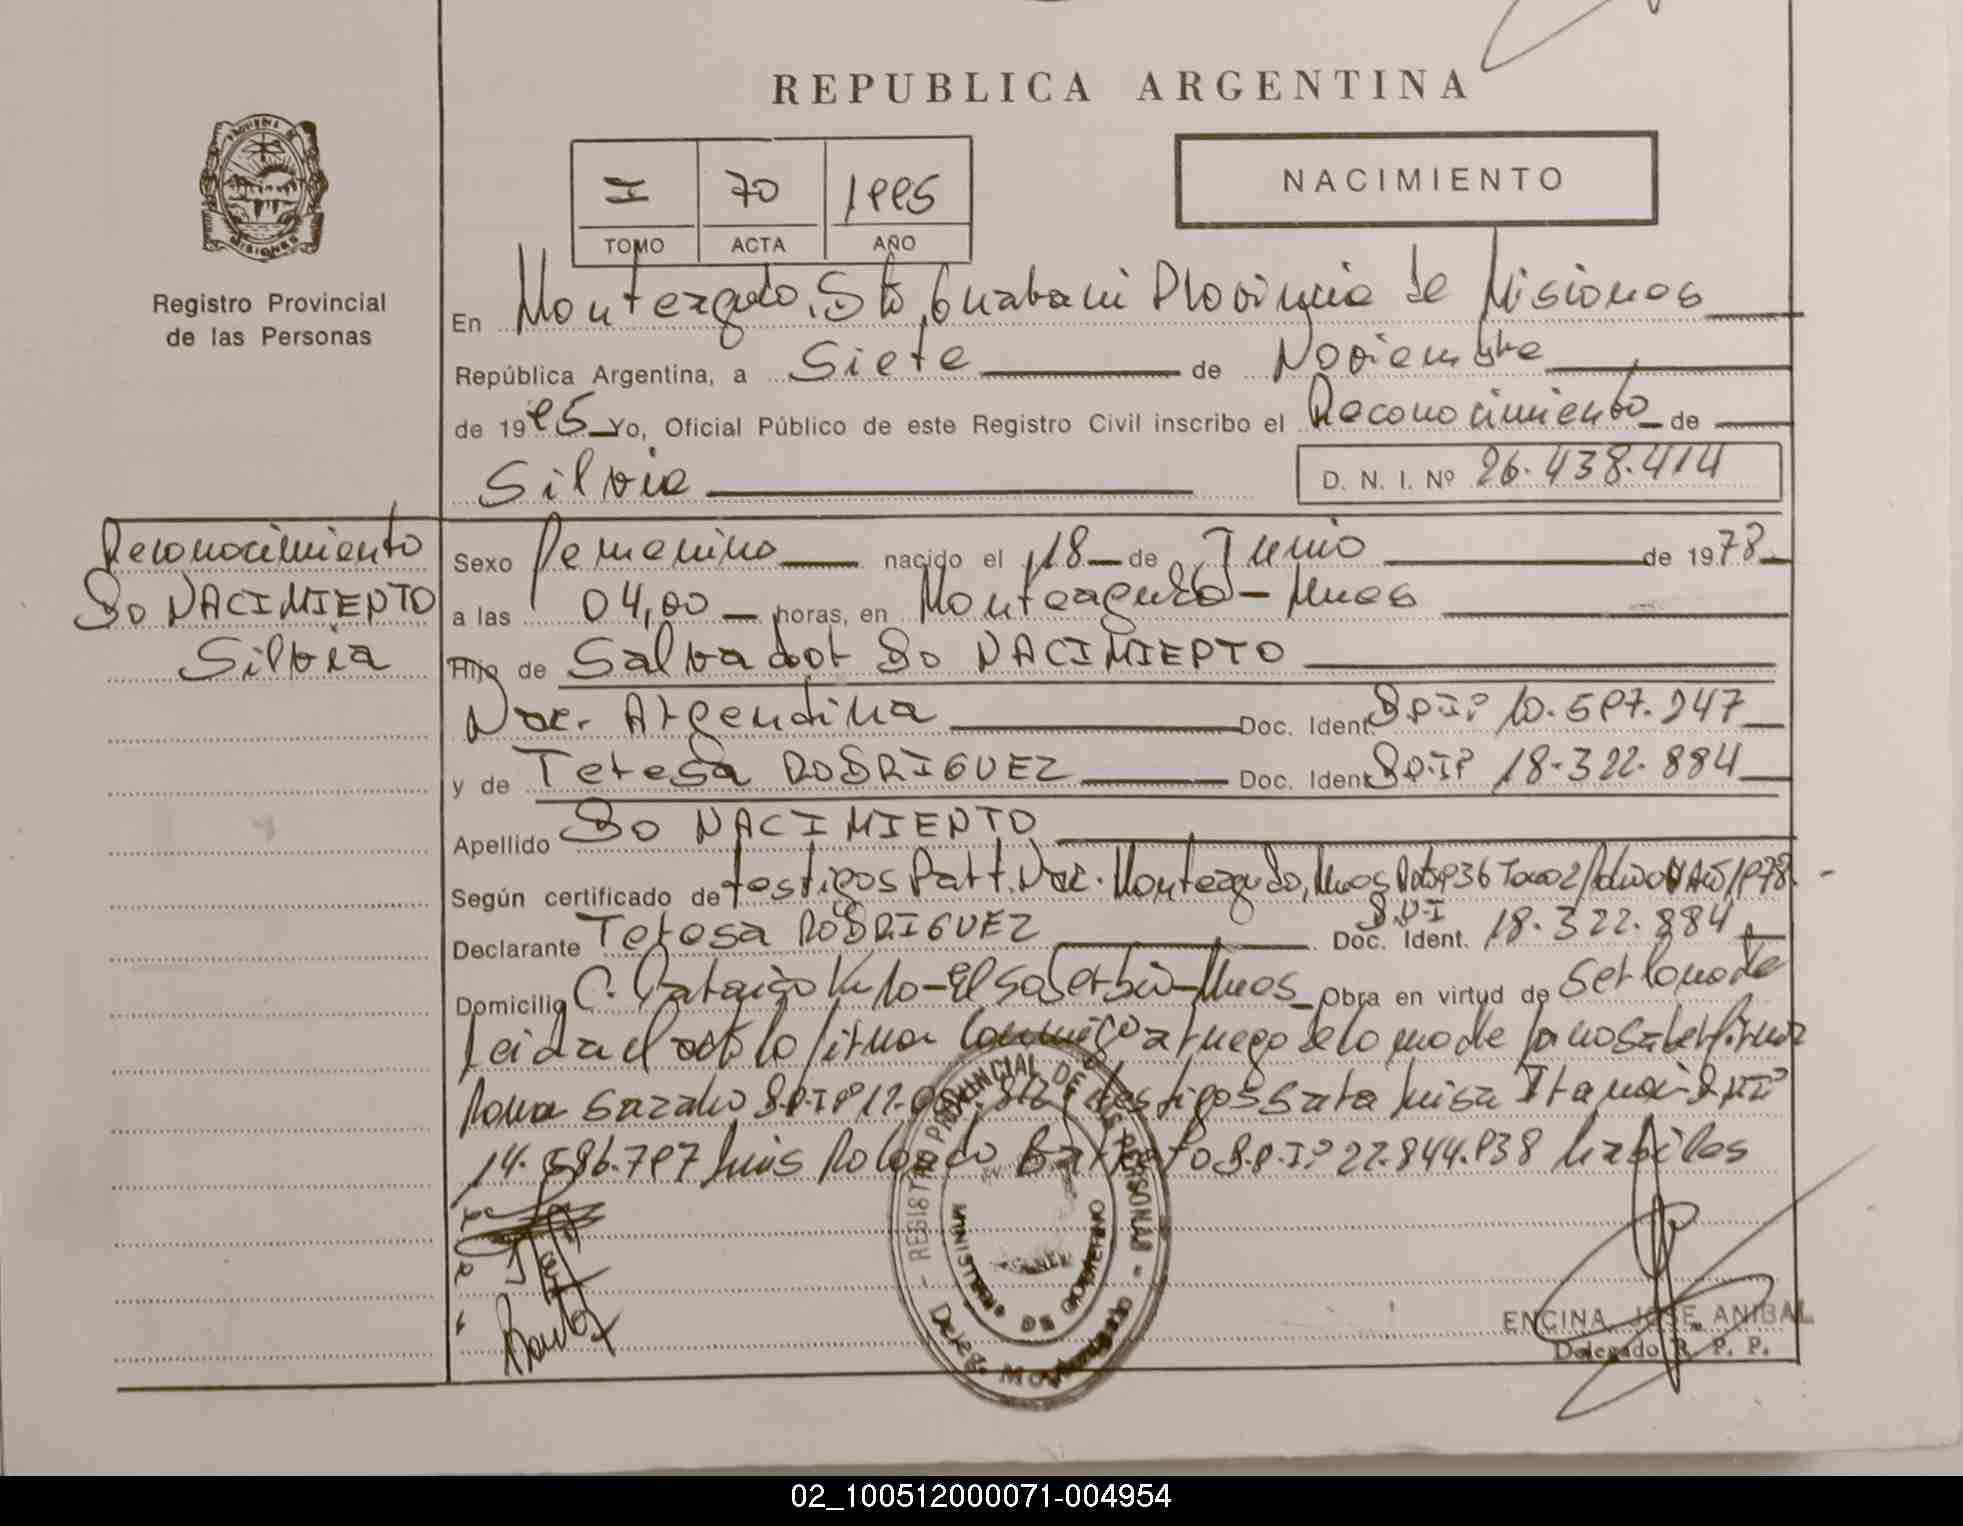 REPUBLICA ARGENTINA
PROVINCIA DE
MISIONES
Registro Provincial
de las Personas
I 70 1995
TOMO ACTA AÑO
NACIMIENTO
En Monteagudo, Dto, Guarani Provincia de Misiones
República Argentina, a Siete de Noviembre
de 1995 Yo, Oficial Público de este Registro Civil inscribo el Reconocimiento de
Silvia D. N. I. Nº 26.438.414
Reconocimiento
Do NACIMIENTO
Silvia
Sexo Femenino nacido el 18 de Junio de 1978
a las 04,00 horas, en Monteagudo - Mnes
Hijo de Salvador Do NACIMIENTO
Nac. Argentina Doc. Ident. D.N.I. 10.597.247
y de Teresa RODRIGUEZ Doc. Ident. D.N.I. 18.322.884
Apellido Do NACIMIENTO
Según certificado de testigos Part. Nac. Monteagudo, Mnes 36 Tomo 2 Año 1978
Declarante Teresa RODRIGUEZ Doc. Ident. D.N.I 18.322.884
Domicilio C. - Mnes Obra en virtud de ser la madre
Leida el acta la firma conmigo a ruego de la madre por no saber firmar
D.N.I. testigos Sara Luisa D.N.I.
14.586.797 Luis Rolando D.N.I. 22.844.938 habiles
REGISTRO PROVINCIAL DE LAS PERSONAS
MINISTERIO DE GOBIERNO
Deleg. Monteagudo
ENCINA, JOSE ANIBAL
Delegado R. P. P.
02_100512000071-004954